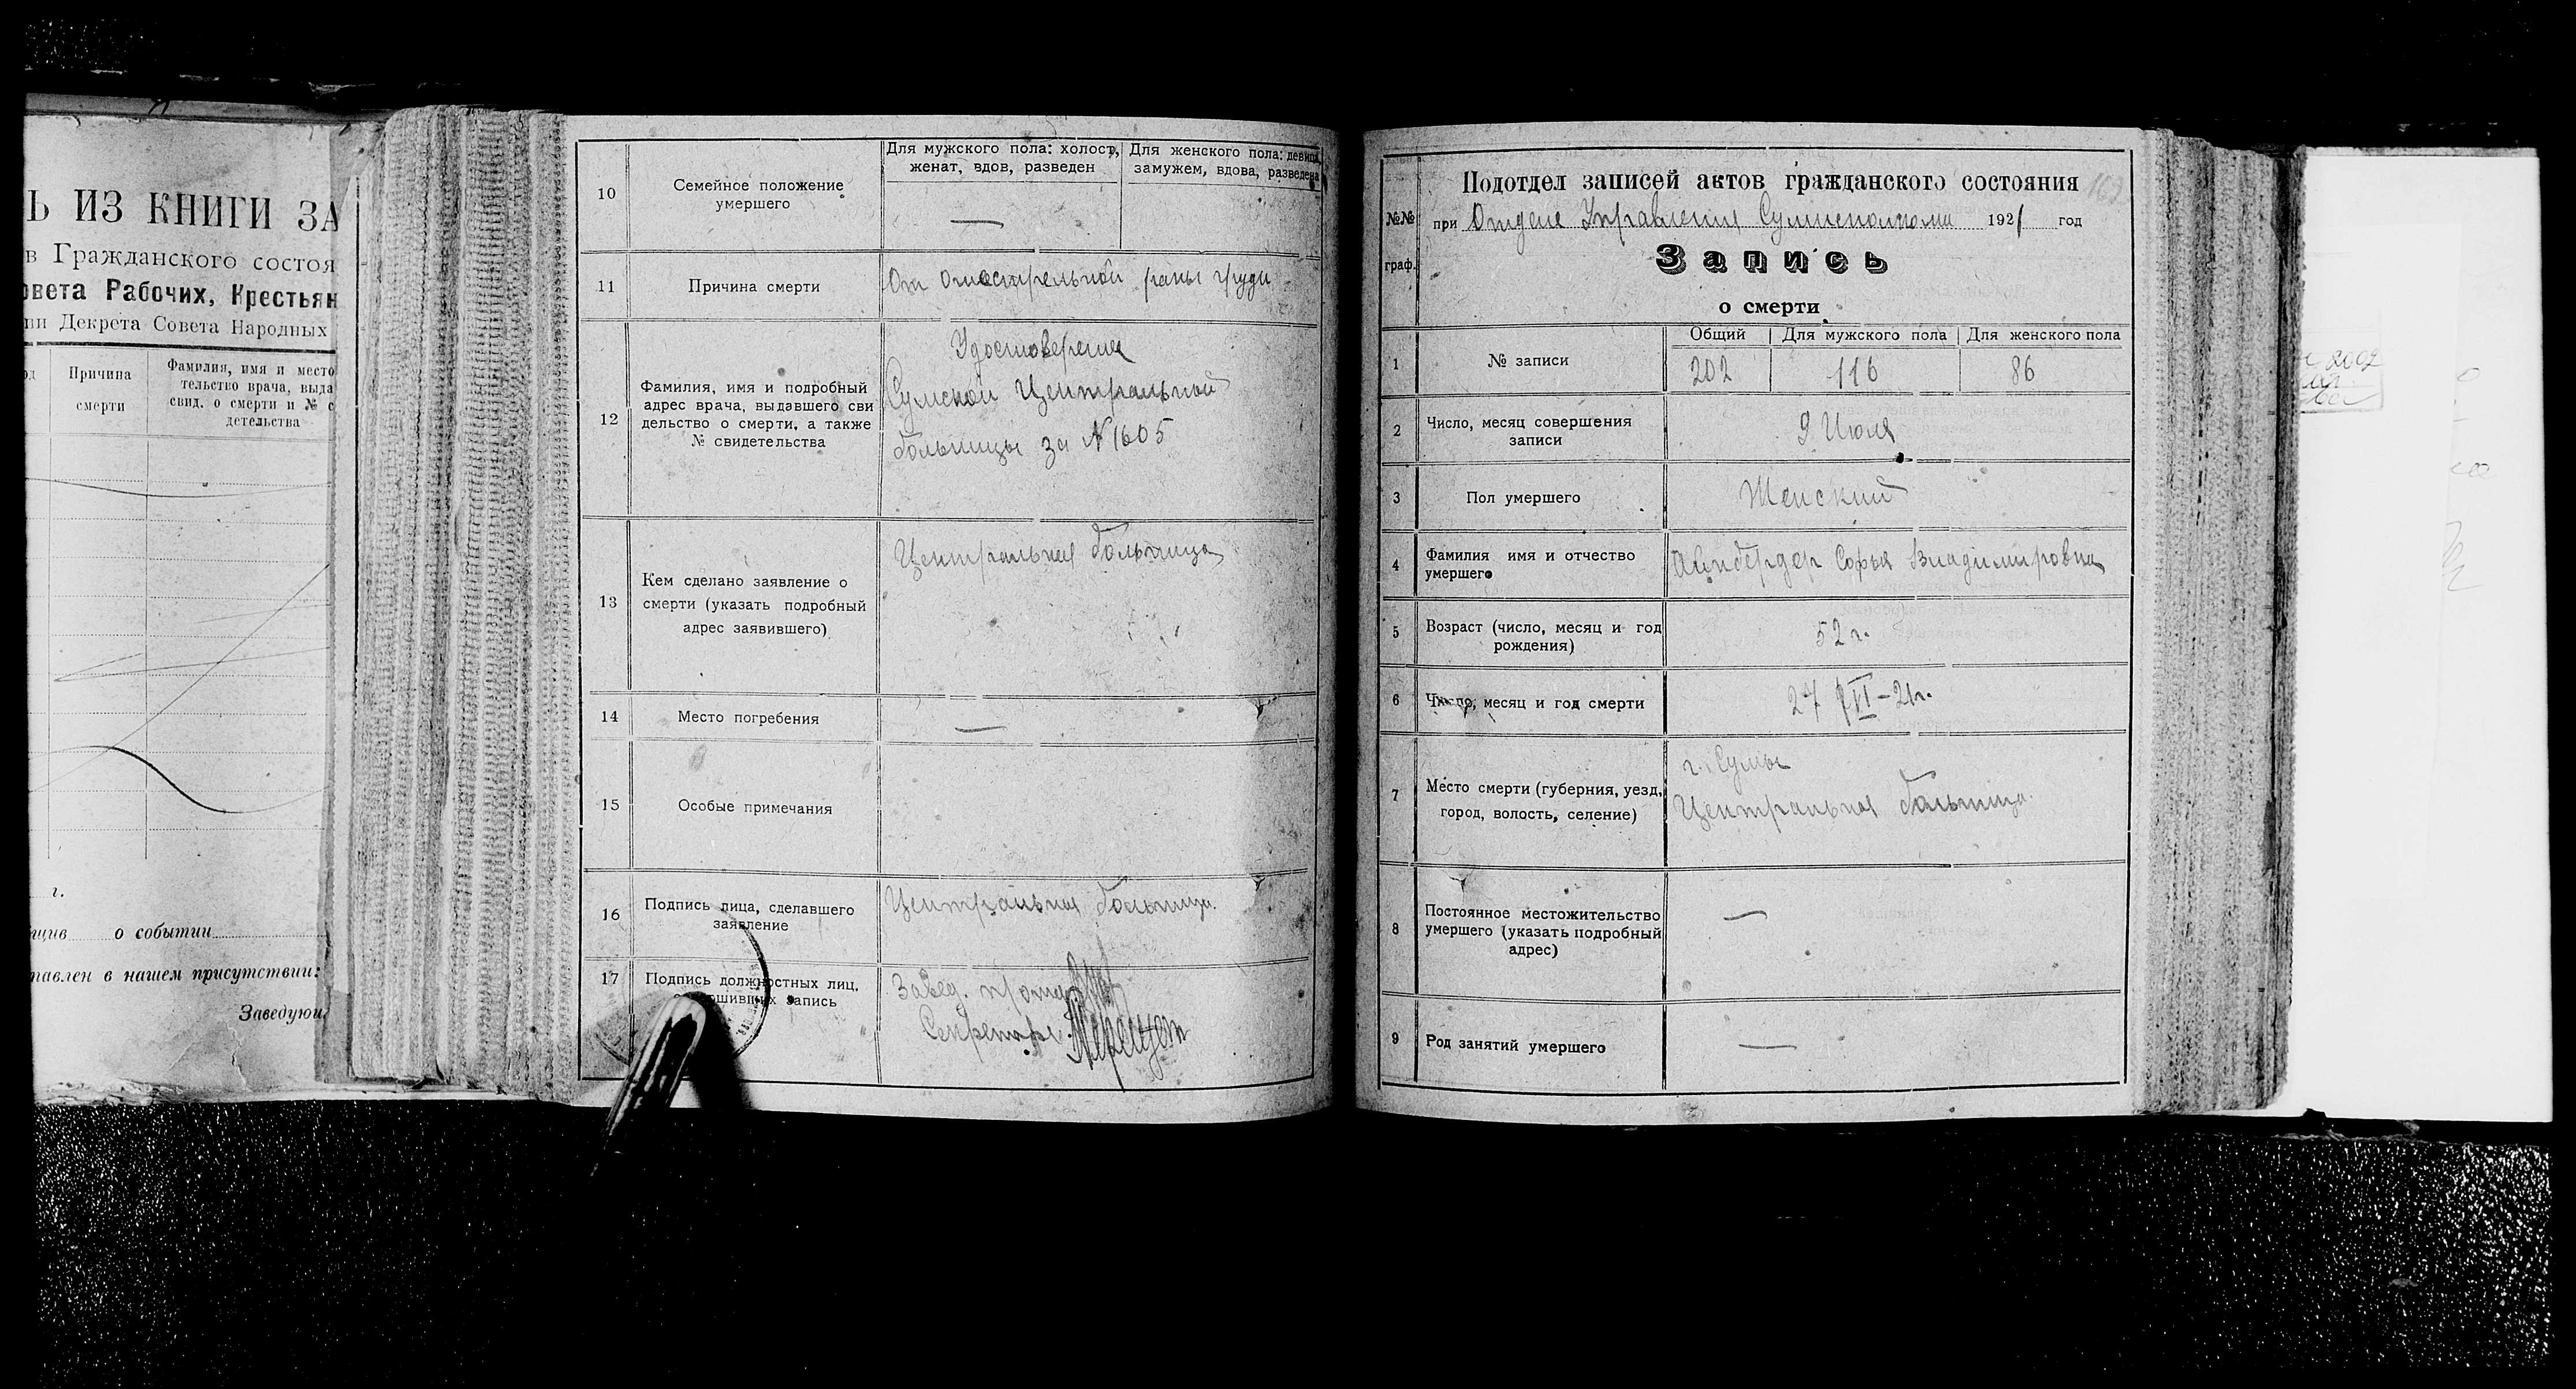 Ь ИЗ КНИГИ ЗА
в Гражданского состоя
овета Рабочих, Крестьян
ии Декрета Совета Народных
Причина смерти
Фамилия, имя и место
тельство врача, выда
свид. о смерти и № с
детельства
г.
о событии
тавлен в нашем присутствии:
Заведующ
10
Семейное положение
умершего
Для мужского пола: холост,
женат, вдов, разведен
Для женского пола: девица,
замужем, вдова, разведена
—
11
Причина смерти
От огнестрельной раны груди
12
Фамилия, имя и подробный
адрес врача, выдавшего сви
дельство о смерти, а также
№ свидетельства
Удостоверение
Сумской Центральной
больницы за № 1605
13
Кем сделано заявление о
смерти (указать подробный
адрес заявившего)
Центральная больница
14
Место погребения
—
15
Особые примечания
16
Подпись лица, сделавшего
заявление
Центральная больница.
17
Подпись должностных лиц,
совершивших запись
Завед.
Секретарь
№№
граф.
Подотдел записей актов гражданского состояния
при Отделе Управления Сумисполкома 1921 год
Запись
о смерти
1
№ записи
Общий
Для мужского пола
Для женского пола
202
116
86
2
Число, месяц совершения
записи
9 Июля
3
Пол умершего
Женский
4
Фамилия имя и отчество
умершего
Айнбердер Софья Владимировна
5
Возраст (число, месяц и год
рождения)
52 г.
6
Число, месяц и год смерти
27 VI-21г.
7
Место смерти (губерния, уезд,
город, волость, селение)
г. Сумы
Центральная больница.
8
Постоянное местожительство
умершего (указать подробный
адрес)
—
9
Род занятий умершего
—